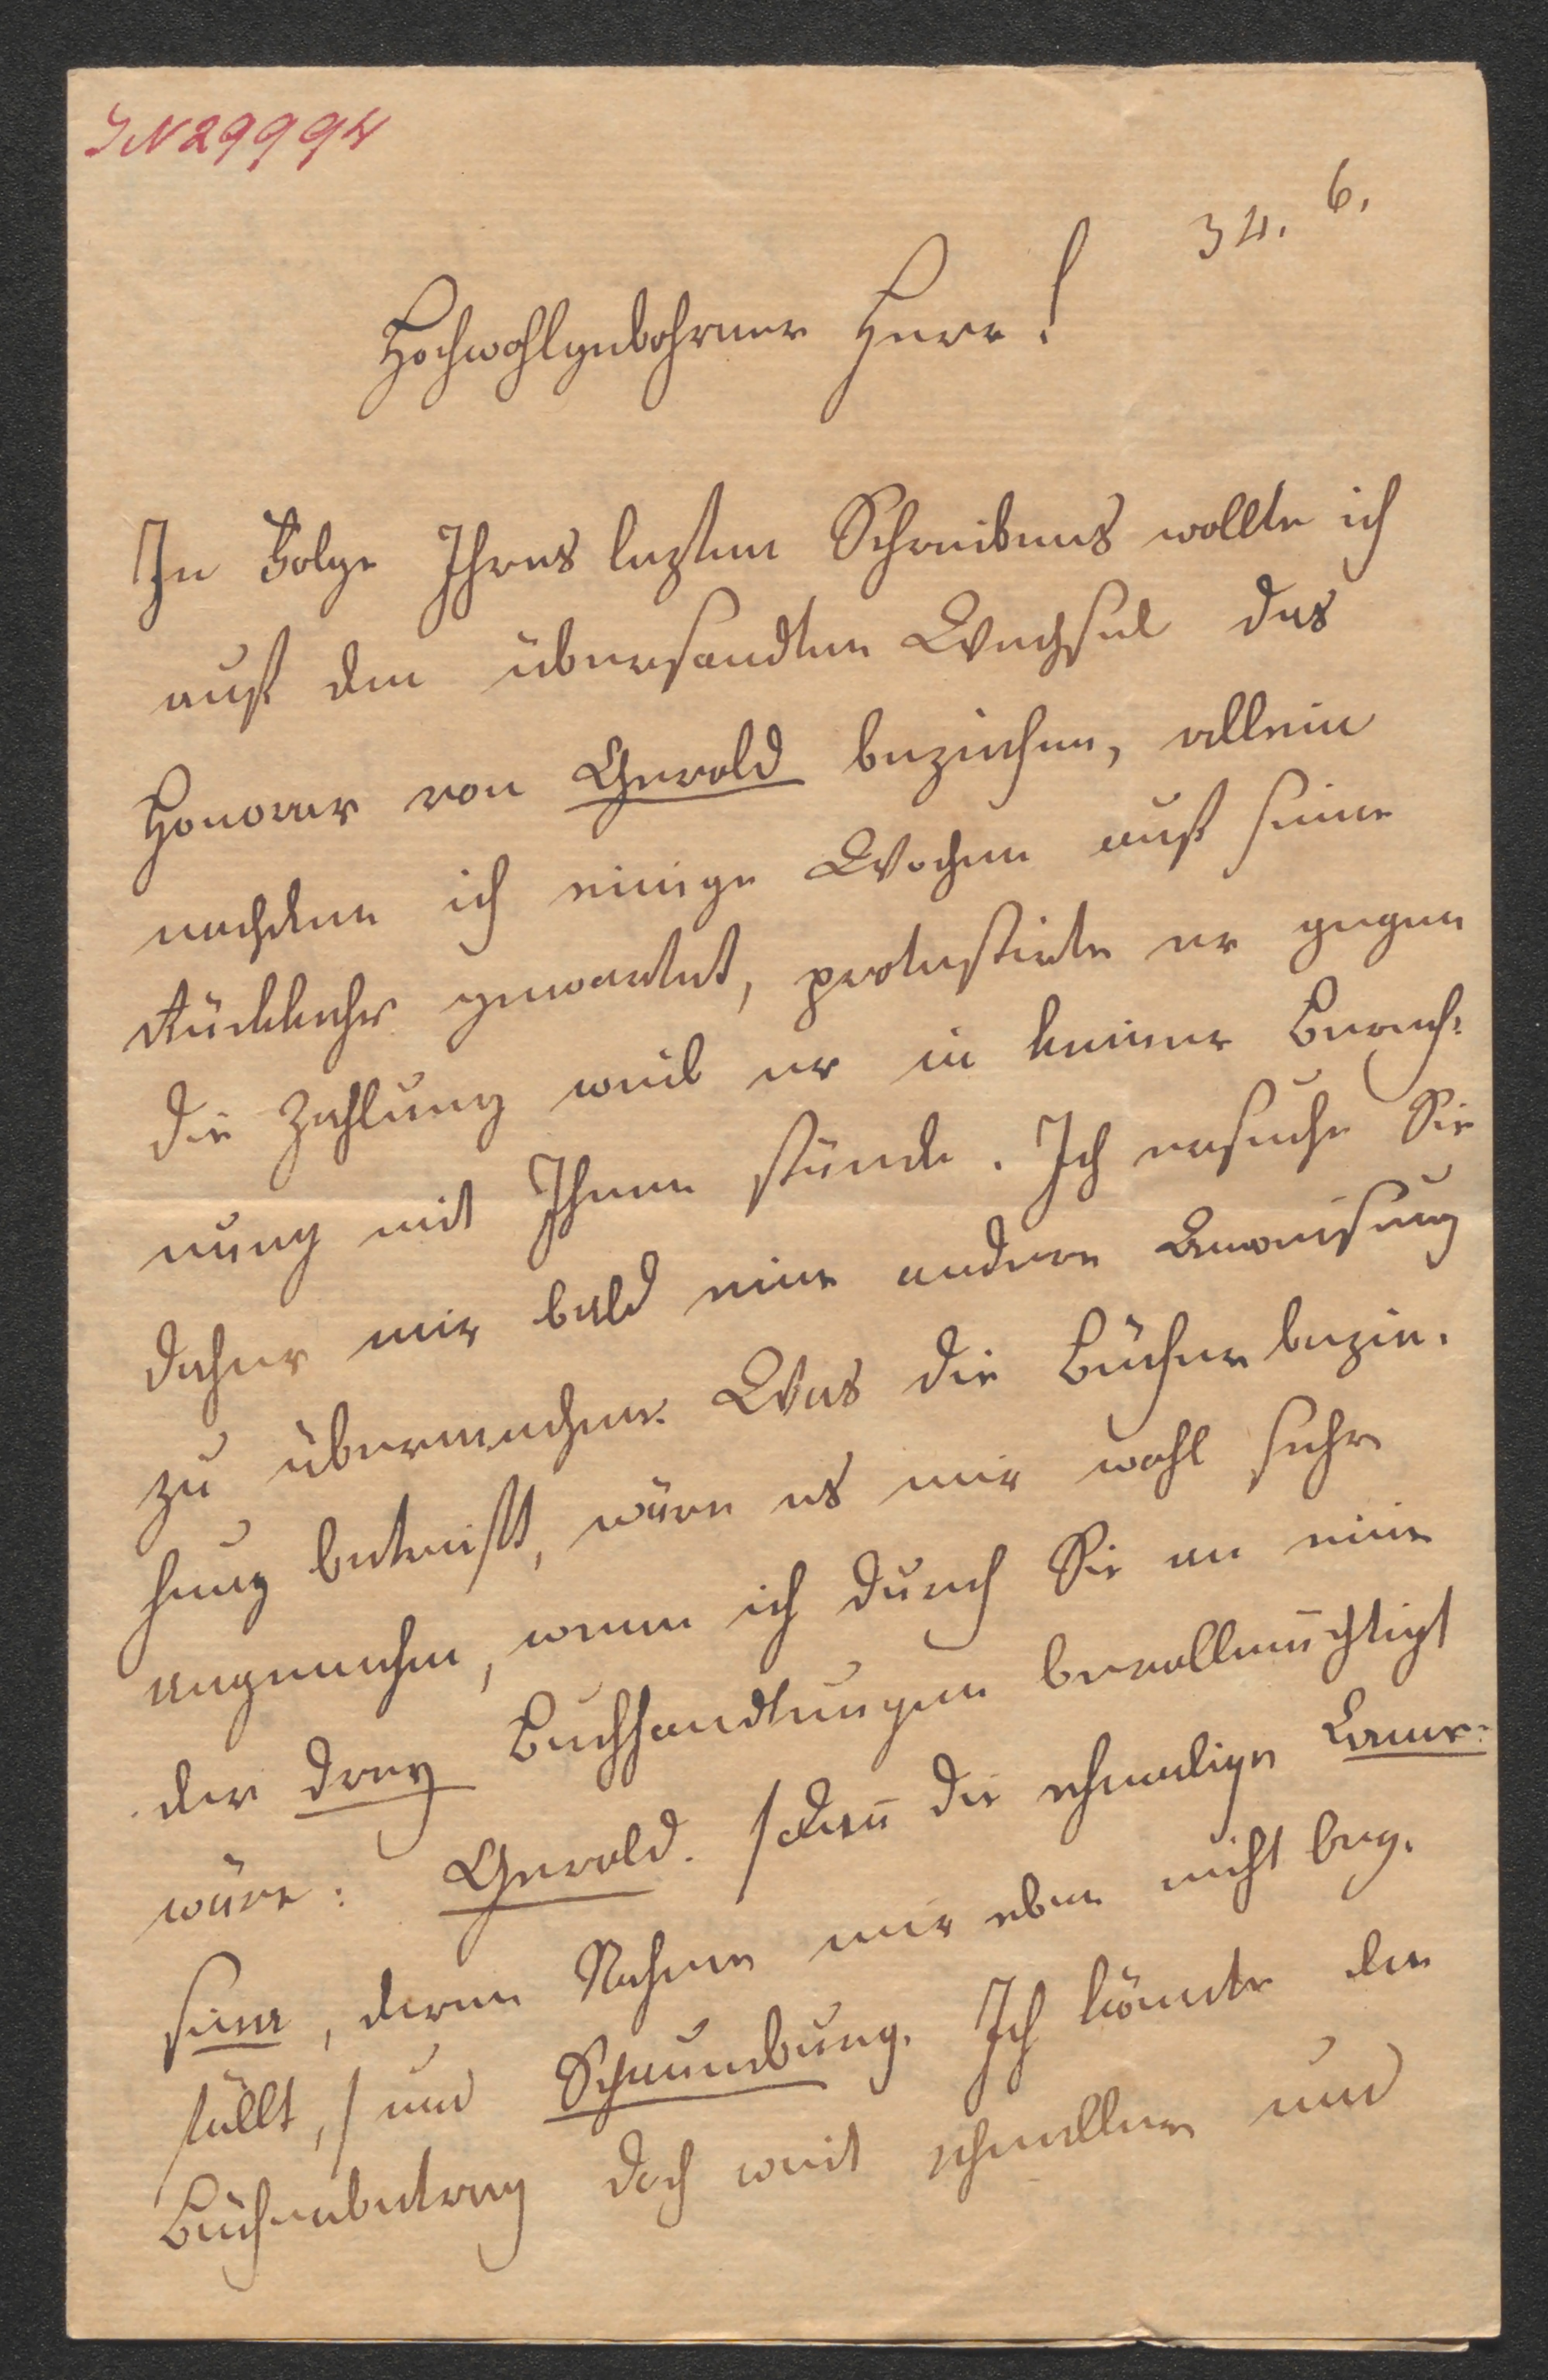 IN 29994
34. 6.
Hochwohlgebohrner Herr!
In Folge Ihres lezten Schreibens wollte ich
auf den übersandten Wechsel das
Honorar von Gerold beziehen, allein
nachdem ich einige Wochen auf seine
Rückkehr gewartet, protestirte er gegen
die Zahlung weil er in keiner Berech-
nung mit Ihnen stünde. Ich ersuche Sie
daher mir bald eine andere Anweisung
zu übermachen. Was die Bücher bezie-
hung betrifft, wäre es mir wohl sehr
angenehm, wenn ich durch Sie an eine
der drey Buchhandlungen bevollmächtigt
wäre: Gerold. / dann die ehmalige Came-
sina, deren Nahme mir eben nicht bey-
fällt, / und Schaumburg. Ich könnte den
Bücherbetrag doch weit schneller und